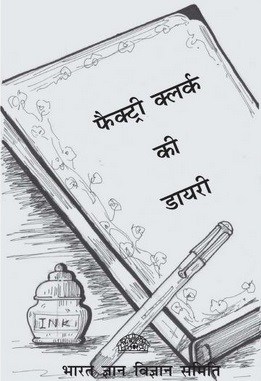 फैक्ट्री क्लर्क
की
डायरी
INK
भारत ज्ञान विज्ञान समिति